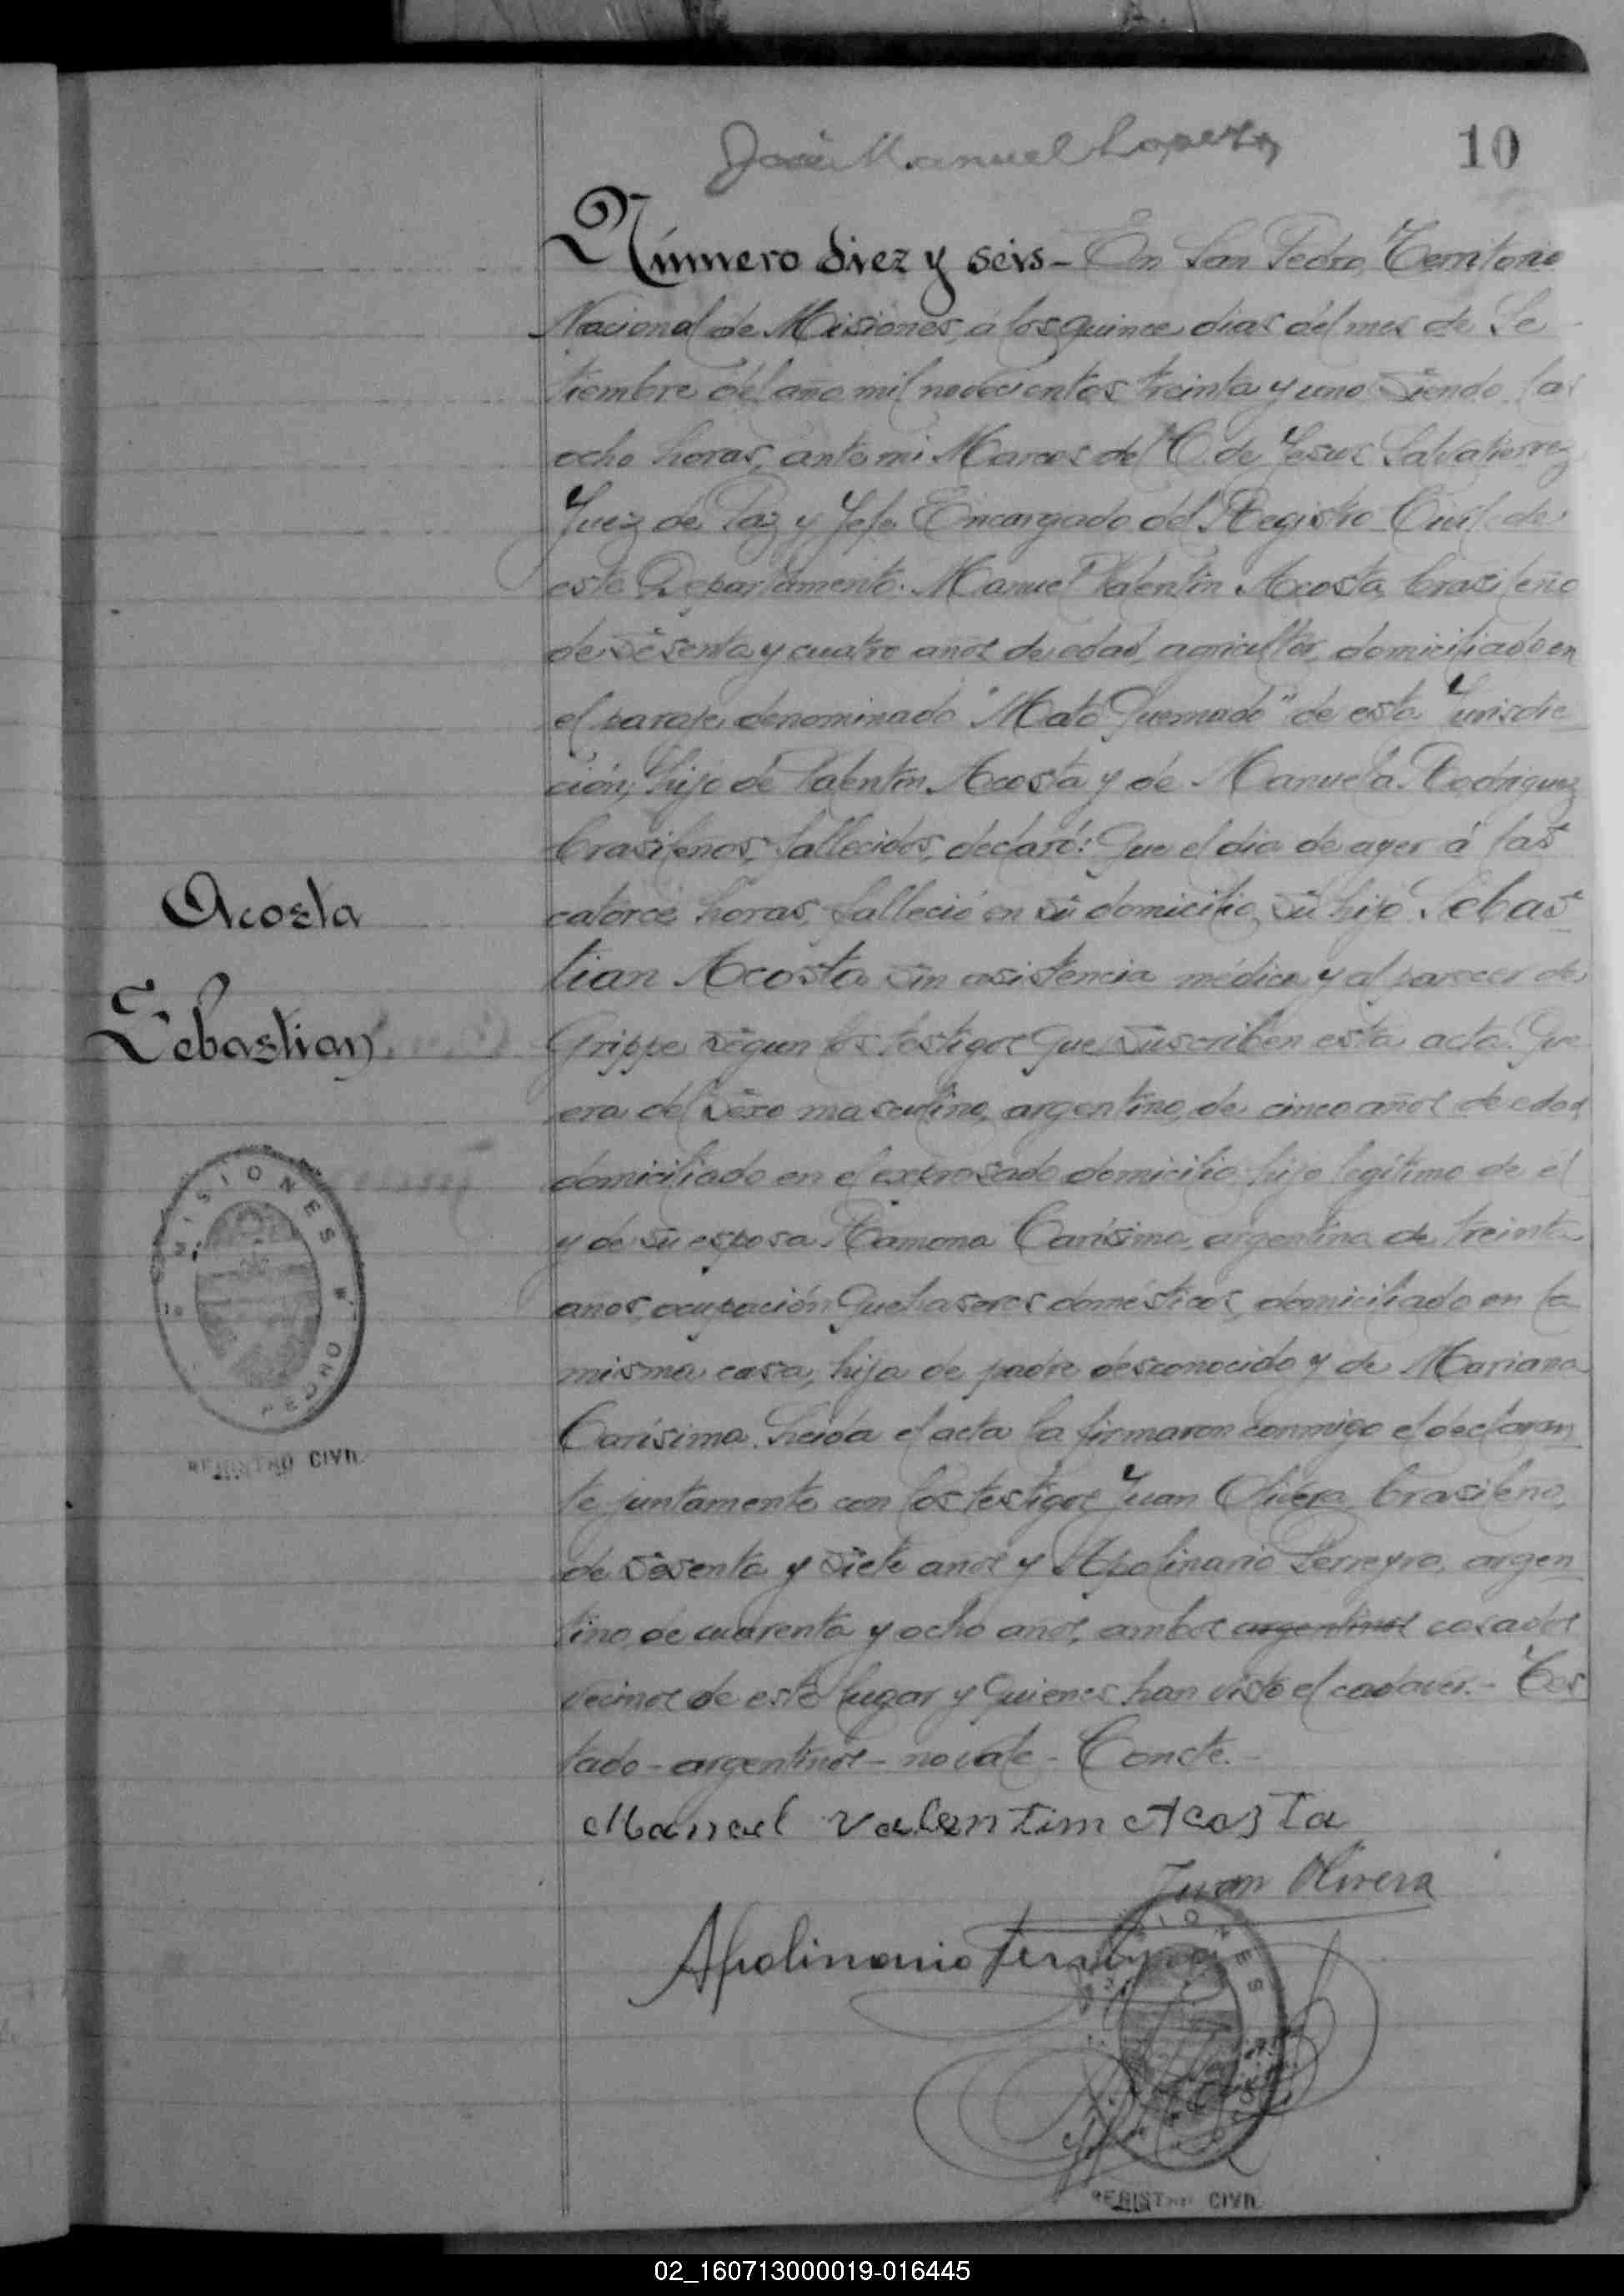 10
José Manuel Lopez
Número diez y seis - En San Pedro, Territorio
Nacional de Misiones, á los quince dias del mes de Se
tiembre del año mil novecientos treinta y uno siendo las
ocho horas, ante mi Marcos del C. de Jesus Salvatierra
Juez de Paz y Jefe Encargado del Registro Civil de
este Departamento. Manuel Valentin Acosta, brasileño
de sesenta y cuatro años de edad, agricultor, domiciliado en
el paraje denominado "Mato Quemado" de esta Jurisdic
ción, hijo de Valentin Acosta y de Manuela Rodriguez
brasileños, fallecidos, declaró: Que el dia de ayer á las
catorce horas, falleció en su domicilio, su hijo Sebas
Acosta
tian Acosta sin asistencia médica y al parecer de
Sebastian
Grippe segun los testigos que suscriben esta acta. Que
era del sexo masculino, argentino, de cinco años de edad,
domiciliado en el expresado domicilio hijo legítimo de el
y de su esposa Ramona Carísimo, argentina de treinta
años, ocupación quehaseres domésticos, domiciliado en la
misma casa, hija de padre desconocido y de Mariana
Carísima. Leida el acta la firmaron conmigo el declaran
te juntamente con los testigos Juan Olivera, brasileño,
de sesenta y siete años y Apolinario Ferreyra, argen
tino, de cuarenta y ocho años, ambos argentinos casados
vecinos de este lugar y quienes han visto el cadaver. - Tes
tado - argentinos - no vale - Conste. -
MISIONES
REGISTRO CIVIL
Manuel Valentim Acosta
Juan Olivera
Apolinario Ferreyra
REGISTRO CIVIL
02_160713000019-016445